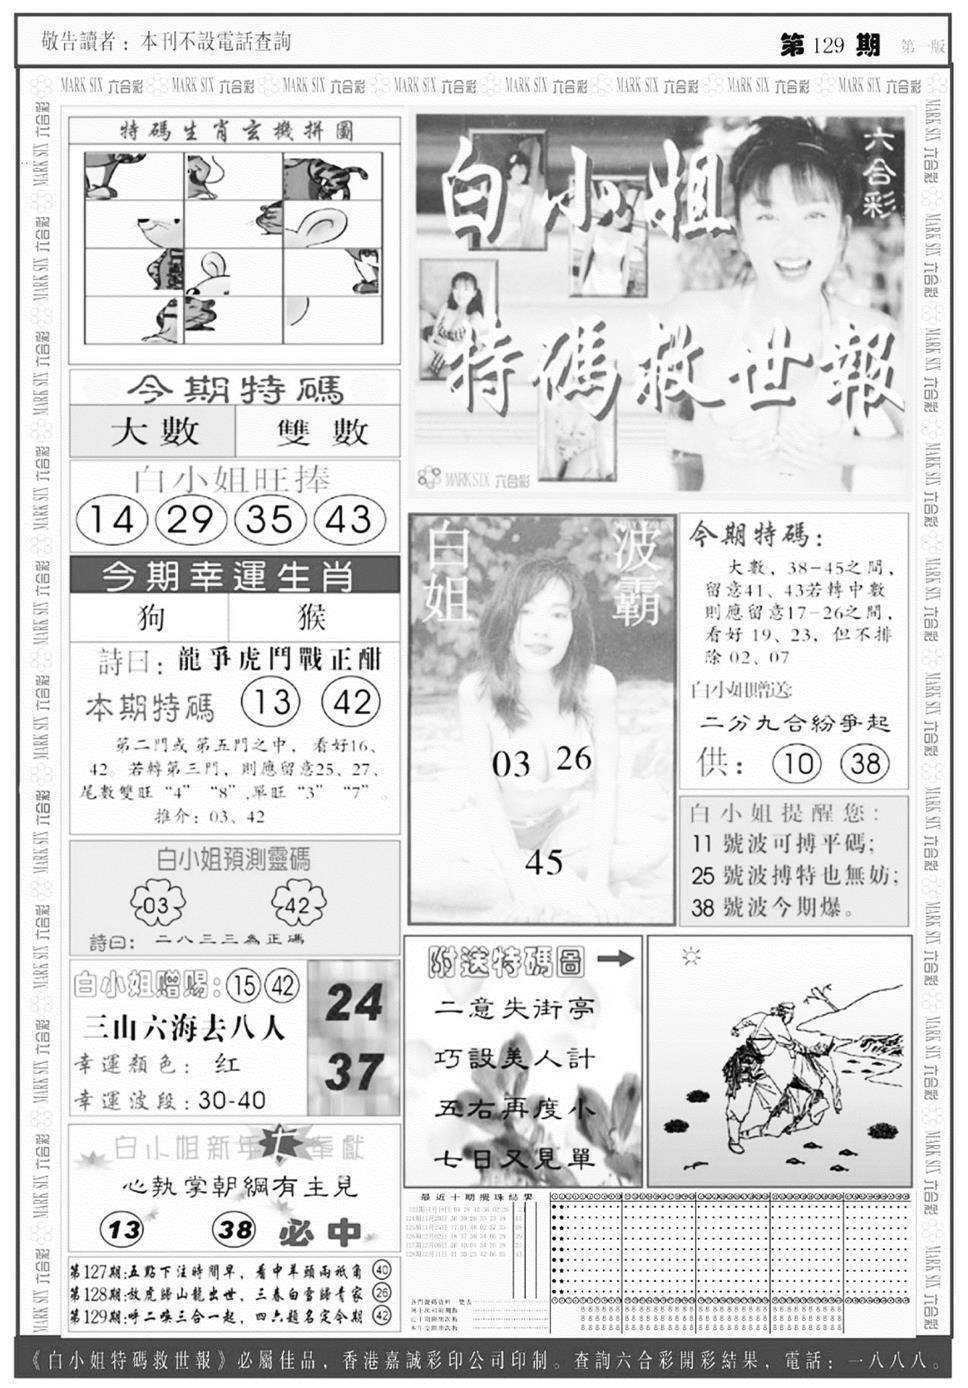 敬告讀者：本刊不設電話查詢
第129期 第一版
MARK SIX 六合彩
特碼生肖玄機拼圖
六合彩
白小姐
特碼救世報
MARK SIX 六合彩
今期特碼
大數 雙數
白小姐旺捧
14 29 35 43
今期幸運生肖
狗 猴
詩曰：龍爭虎鬥戰正酣
本期特碼 13 42
第二門或第五門之中，看好16、
42。若轉第三門，則應留意25、27、
尾數雙旺“4”“8”，單旺“3”“7”。
推介：03、42
白小姐預測靈碼
03 42
詩曰：二八三三為正碼
白小姐赠赐：15 42
三山六海去八人
幸運顏色：红
幸運波段：30-40
24
37
白小姐新年 奉獻
心執掌朝綱有主見
13 38 必中
第127期:五點下注時間早，看中羊頭兩衹角 40
第128期:放虎歸山龍出世，三春白當歸青家 26
第129期:呼二喚三合一起，四六題名定今期 42
白姐 波霸
03 26
45
今期特碼：
大數，38-45之間，
留意41、43若轉中數
則應留意17-26之間，
看好19、23，但不排
除02、07
白小姐贈送:
二分九合紛爭起
供：10 38
白小姐提醒您：
11號波可搏平碼；
25號波搏特也無妨；
38號波今期爆。
附送特碼圖
二意失街亭
巧設美人計
五右再度小
七日又見單
最近十期攪珠結果
《白小姐特碼救世報》必屬佳品，香港嘉誠彩印公司印制。查詢六合彩開彩結果，電話：一八八八。